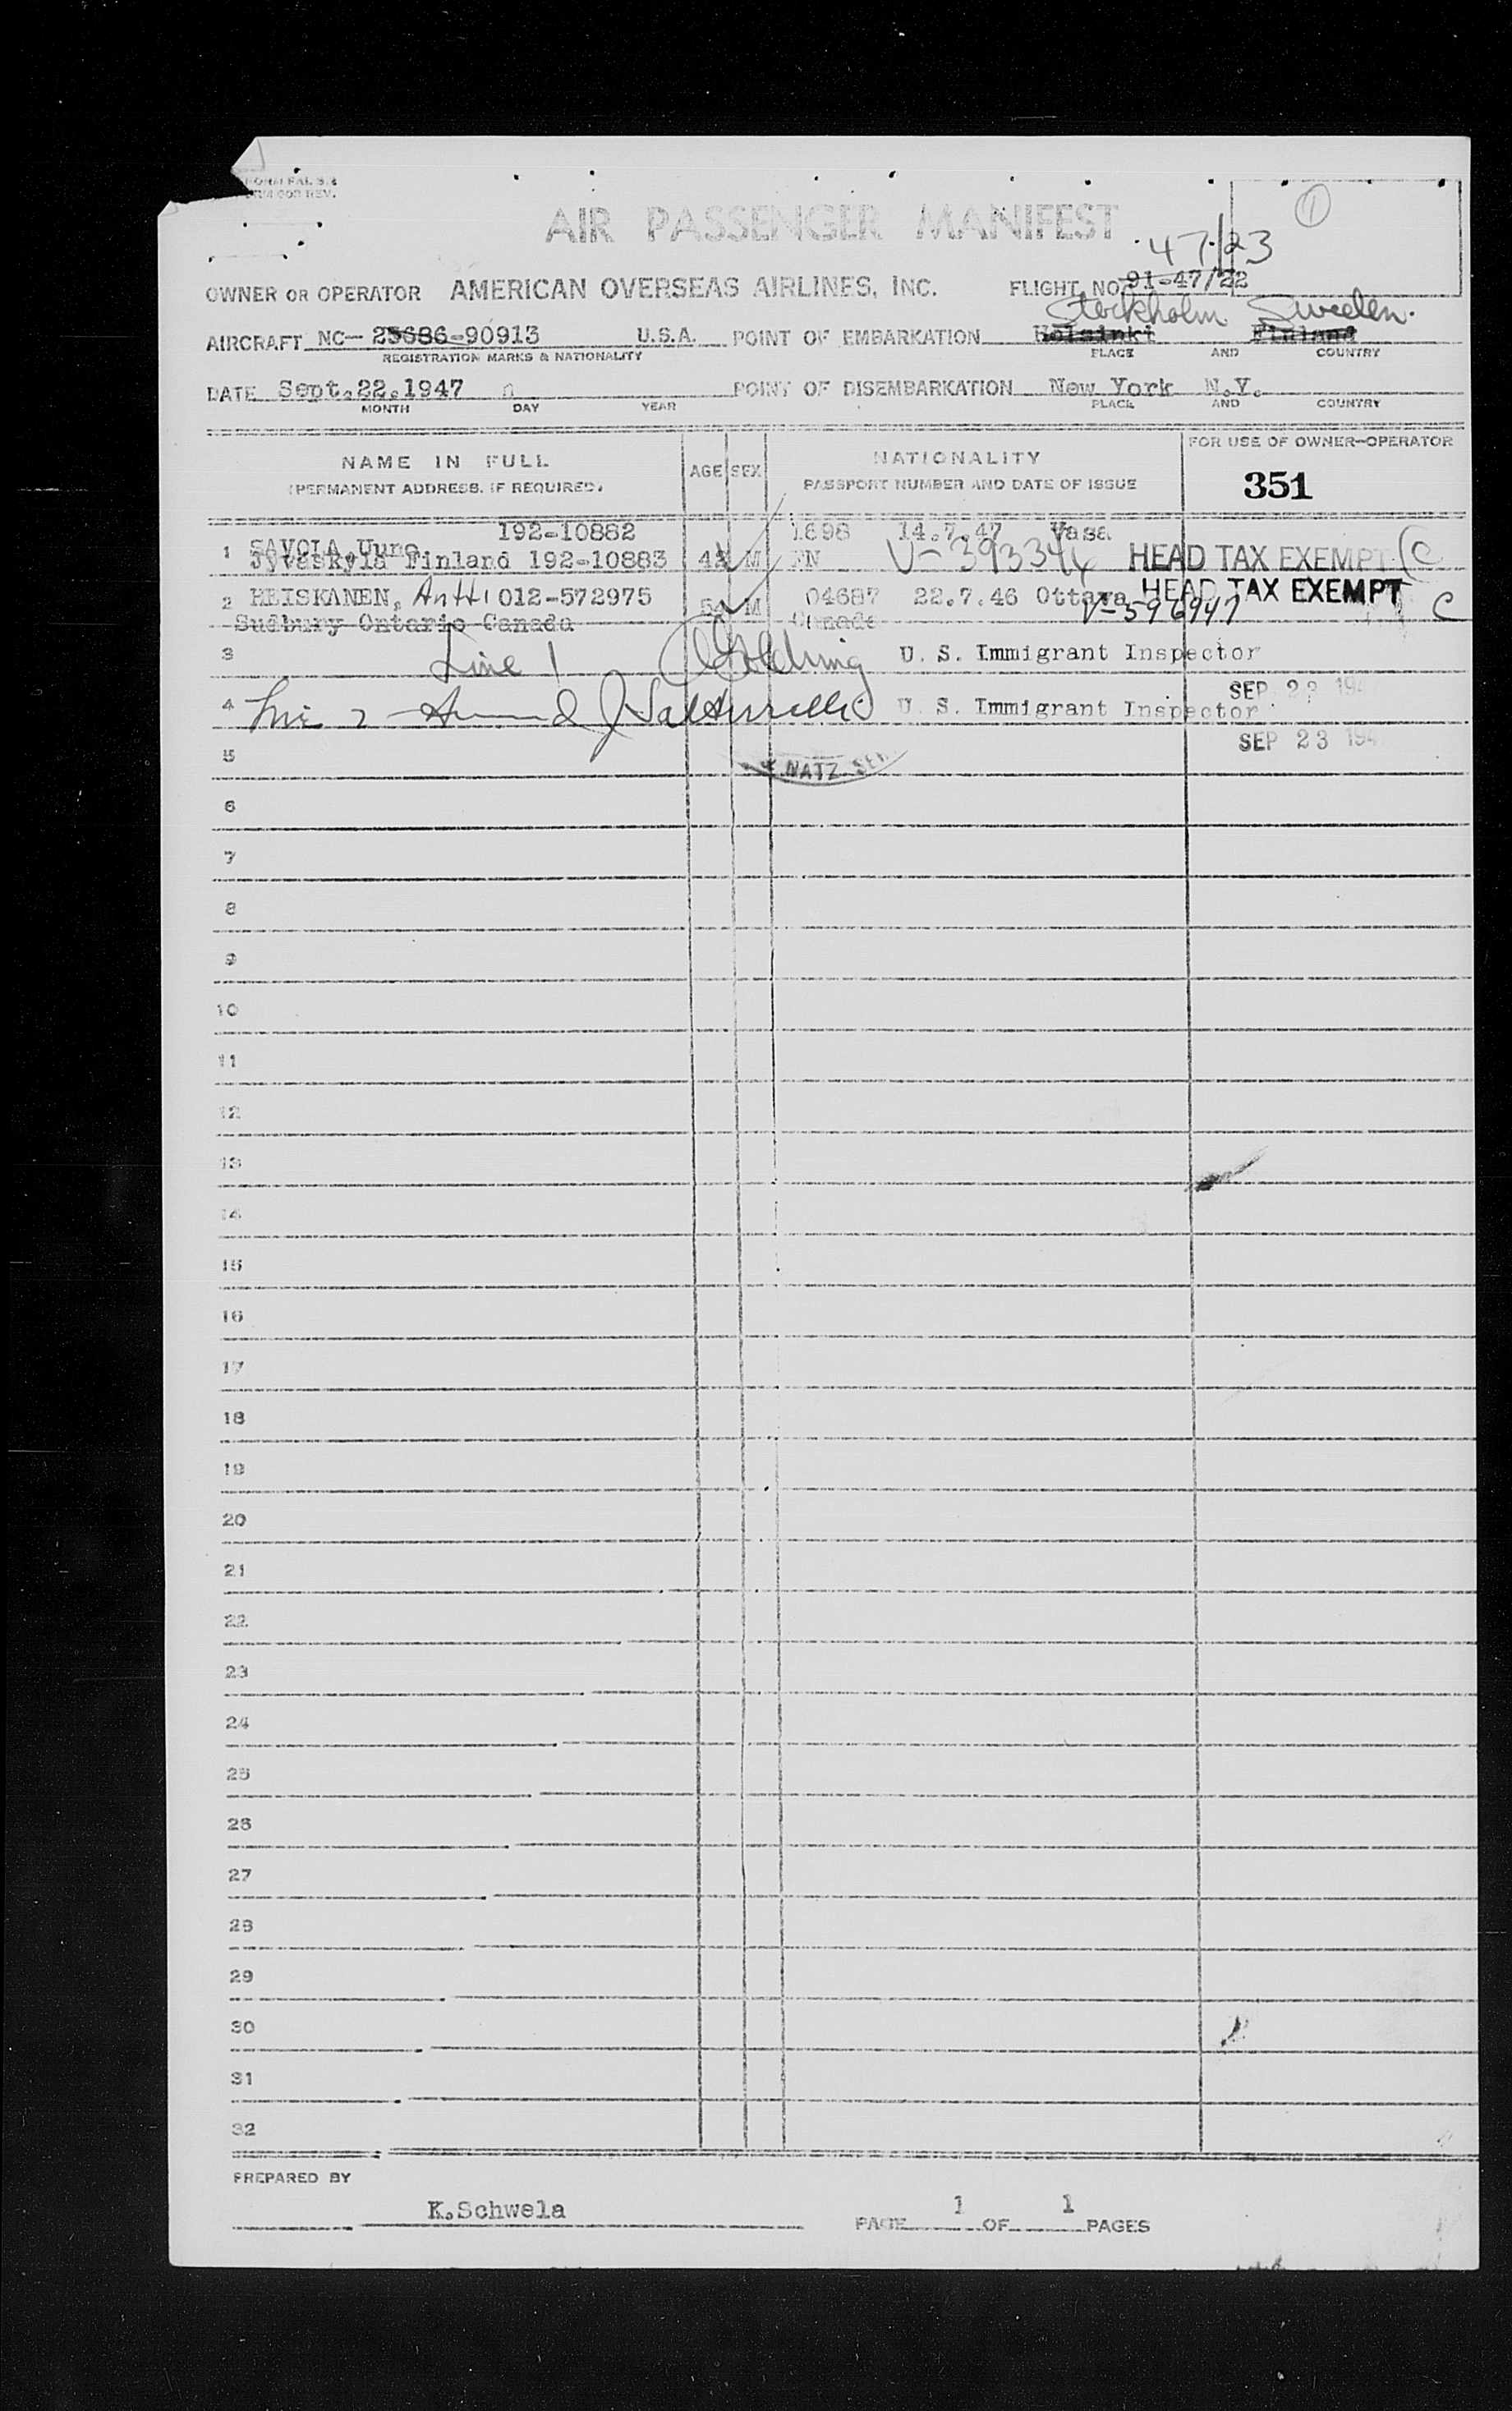 ①
AIR PASSENGER MANIFEST
47/23
OWNER OR OPERATOR AMERICAN OVERSEAS AIRLINES, INC. FLIGHT NO. 91-47/22
Stockholm Sweden.
AIRCRAFT NC- 25686-90913 U.S.A. POINT OF EMBARKATION Helsinki Finland
REGISTRATION MARKS & NATIONALITY PLACE AND COUNTRY
DATE Sept.22.1947 POINT OF DISEMBARKATION New York N.Y.
MONTH DAY YEAR PLACE AND COUNTRY
NAME IN FULL AGE SEX NATIONALITY FOR USE OF OWNER-OPERATOR
(PERMANENT ADDRESS, IF REQUIRED) PASSPORT NUMBER AND DATE OF ISSUE 351
192-10882 1898 14.7.47 Vasa
1 SAVOLA, Uuno
Jyvaskyla Finland 192-10883 42 M FN V-393344 HEAD TAX EXEMPT C
2 HEISKANEN, Antti 012-572975 54 M 04687 22.7.46 Ottawa HEAD TAX EXEMPT
Sudbury Ontario Canada Canada V-596947 C
3 Line 1 U. S. Immigrant Inspector
SEP 23 194
4 2 U. S. Immigrant Inspector
SEP 23 194
5 NATZ. SER
6
7
8
9
10
11
12
13
14
15
16
17
18
19
20
21
22
23
24
25
26
27
28
29
30
31
32
PREPARED BY
K.Schwela
PAGE 1 OF 1 PAGES